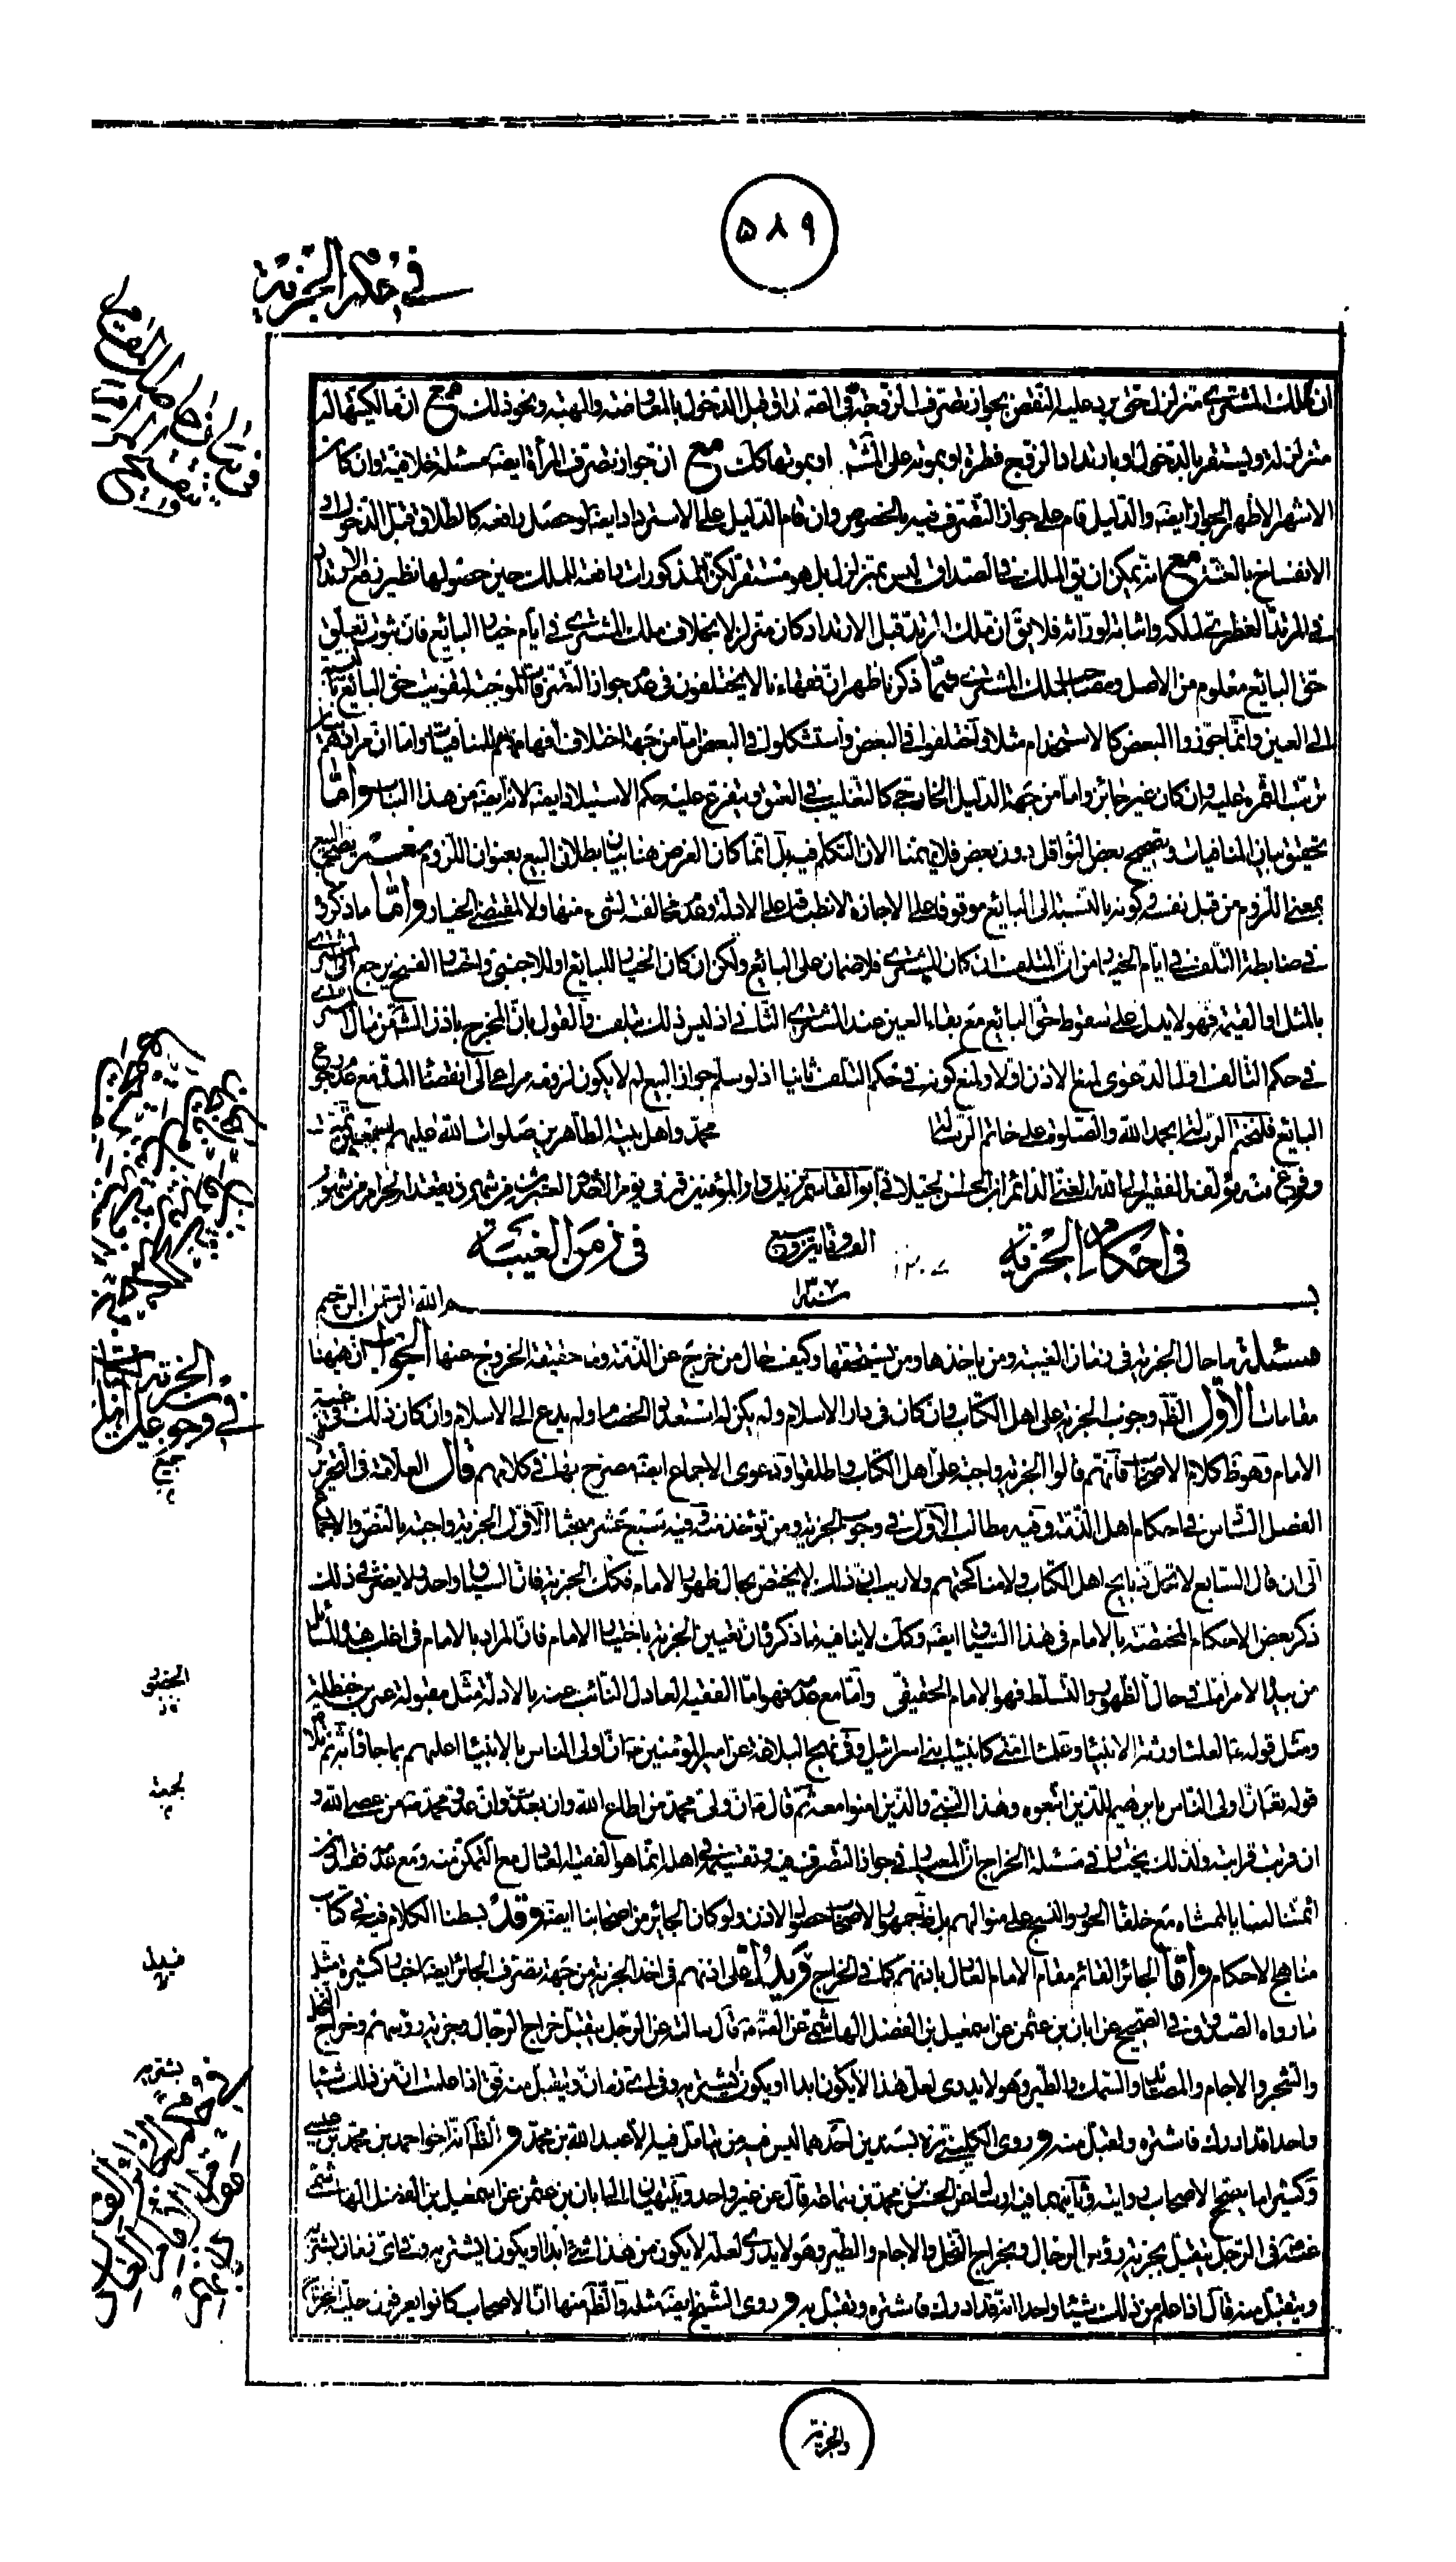 ۵۸۹
في حكم الجزية
ان ملك المشترى متزلزل حتى يرد عليه النقض بجواز تصرف الزوجة في الصداق قبل الدخول بالمعاوضة والهبة ونحو ذلك مع ان مالكيتها له
متزلزلة وليستقر بالدخول او بارتداد الزوج فطرة او بموته على الاشهر او بموتها كك مع ان جواز تصرف المرأة ايضا مسئلة خلافية وان كان
الاشهر الاظهر الجواز ايضا والدليل قام على جواز التصرف فيه بالخصوص وان قام الدليل على الاسترداد ايضا لو حصل رافعه كالطلاق قبل الدخول او
الانفساخ بالعنن مع انه يمكن ان يق الملك في الصداق ليس بمتزلزل بل هو مستقر لكن المذكورات رافعة للملك حين حصولها نظير رفع الارتداد
في المرتد الفطرى لملكه واثباته لوراثه فلا يق ان تملك المرتد قبل الارتداد كان متزلزلا بخلاف ملك المشترى في ايام خيار البايع فان ثبوت تعلق
حق البايع معلوم من الاصل ومصاحب لملك المشترى فمما ذكرنا ظهر ان فقهاءنا لا يختلفون في عدم جواز التصرفات الموجبة لتفويت حق البايع بالنسبة
الى العين وانما جوزوا البعض كالاستخدام مثلا واختلفوا في البعض واستشكلوا في البعض اما من جهة اختلاف افهامهم للمنافيات واما ان مرادهم
ترتب الثمرة عليه وان كان غير جائز واما من جهة الدليل الخارجى كالتغليب في العتق ويتفرع عليه حكم الاستيلاد ايضا لانه ايضا من هذا الباب واما
تحقيق بيان المنافيات وتصحيح بعض النواقل دون بعض فلا يهمنا الان التكلم فيه بل انما كان الغرض هنا بيان بطلان البيع بعنوان اللزوم نعم يصح البيع
بمعنى اللزوم من قبل نفسه وكونه بالنسبة الى البايع موقوفا على الاجازة لانطباقه على الادلة وعدم مخالفته لشىء منها ولا لمقتضى الخيار واما ما ذكروه
في ضابطة التلف في ايام الخيار من ان التلف ان كان للمشترى فلا ضمان على البايع ولكن ان كان الخيار للبايع او للاجنبى واختار الفسخ يرجع الى المشترى
بالمثل والقيمة فهو لا يدل على سقوط حق البايع مع بقاء العين عند المشترى الثانى اذ ليس ذلك بتلف والقول بان المخرج باذن الشرع من مال المشترى
في حكم التالف اول الدعوى لمنع الاذن اولا ولمنع كونه في حكم التلف ثانيا اذ لو سلم جواز البيع لم لا يكون لزومه مراعى الى انقضاء المدة مع عدم رجوع
البايع فلنختم الرسالة بحمد الله والصلوة على خاتم الرسالة محمد واهل بيته الطاهرين صلوات الله عليهم اجمعين
وفرغ منه مؤلفه الفقير الى الله الغنى الدائم ابن الحسن الجيلانى ابو القاسم نزيل دار المؤمنين قم في يوم الثانى العشرين من شهر ذيقعدة الحرام من شهور
في احكام الجزية
في زمن الغيبة
بسم الله الرحمن الرحيم
مسئلة ما حال الجزية في زمان الغيبة ومن ياخذها ومن يستحقها وكيف حال من خرج عن الذمة وما حقيقة الخروج عنها الجواب ان هيهنا
مقامات الاول الظ وجوب الجزية على اهل الكتاب وان كان في دار الاسلام ولم يكن له استعداد الخصام ولم يدع الى الاسلام وان كان ذلك في غيبة
الامام وهو ظ كلام الاصحاب فانهم قالوا الجزية واجبة على اهل الكتاب واطلقوا ودعوى الاجماع ايضا مصرح بها في كلامهم قال العلامة في التحرير
الفصل السادس في احكام اهل الذمة وفيه مطالب الاول في وجوب الجزية ومن تؤخذ منه وفيه سبع عشر مبحثا الاول الجزية واجبة بالنص والاجماع
الى ان قال السابع لا تحل ذبايح اهل الكتاب ولا مناكحتهم ولا ريب ان ذلك لا يختص بحال ظهور الامام فكك الجزية فان السياق واحد ولا يضر في ذلك
ذكر بعض الاحكام المختصة بالامام في هذا السياق ايضا وكك لا ينافيه ما ذكروه ان تعيين الجزية باختيار الامام فان المراد بالامام في اغلب هذه المسائل
من بيده الامر اما في حال الظهور والتسلط فهو الامام الحقيقى واما مع عدمه فهو اما الفقيه العادل النائب عنه بالادلة مثل مقبولة عمر بن حنظلة
ومثل قوله ع العلماء ورثة الانبياء وعلماء امتى كانبياء بنى اسرائيل وفي نهج البلاغة عن امير المؤمنين ع ان اولى الناس بالانبياء اعلمهم بما جاؤا به ثم تلا
قوله تعالى ان اولى الناس بابرهيم للذين اتبعوه وهذا النبى والذين امنوا معه ثم قال ع ان ولى محمد من اطاع الله وان بعدت وان عدو محمد ص من عصى الله و
ان قربت قرابته ولذلك يختار في مسئلة الخراج ان المعيار في جواز التصرف فيه وتقسيمه في اهله انما هو الفقيه العادل مع التمكن منه ومع عدمه فقد اذن
ائمتنا لنا بالمماشاه مع خلفاء الجور والنسج على منوالهم بل ظ جمهور الاصحاب حصول الاذن ولو كان الجائر من اصحابنا ايضا وقد بسطنا الكلام فيه في كتاب
مناهج الاحكام واما الجائر القائم مقام الامام العادل باذنهم كما في الخراج ويدل على اذنهم في اخذ الجزية من جهة تصرف الجائر ايضا اخبار كثيرة مثل
ما رواه الصدوق في الصحيح عن ابان بن عثمن عن اسمعيل بن الفضل الهاشمى عن الصادق ع قال سالته عن الرجل يتقبل خراج الرجال وجزية رؤسهم وخراج النخل
والشجر والاجام والمصائد والسمك والطير وهو لا يدرى لعل هذا لا يكون ابدا او يكون ايشتريه وفي اى زمان ويتقبل منه فق اذا علمت ان من ذلك شيئا
واحدا قد ادرك فاشتره وتقبل منه و روى الكلينى ره بسندين احدهما ليس فيه من يتامل فيه الا عبد الله بن محمد و الظ انه اخو احمد بن محمد بن عيسى
وكثيرا ما يصحح الاصحاب روايته وثانيهما فيه ارسال عن الحسن بن محمد بن سماعة قال عن غير واحد وينتهيان الى ابان بن عثمن عن اسمعيل بن الفضل الهاشمى
عنه ع في الرجل يتقبل بجزية رؤس الرجال وبخراج النخل والاجام والطير وهو لا يدرى لعله لا يكون من هذا شىء ابدا او يكون ايشتريه وفي اى زمان يشتريه
ويتقبل منه قال اذا علم من ذلك شيئا واحدا انه قد ادرك فاشتره وتقبل به و روى الشيخ ايضا مثله والظ منها ان الاصحاب كانوا يعرفون حلية
والجزية